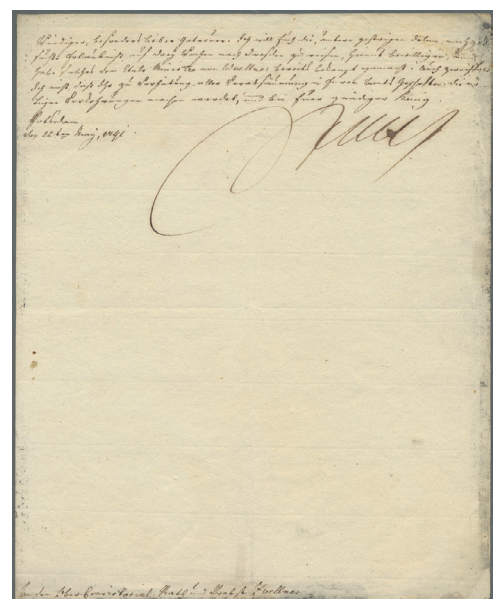 Würdiger, besonders lieber Getreuer. Ich will Euch die, unterm gestrigen Dato, nachge
suchte Erlaubniß, auf drey Wochen nach Dresden zu reisen, hiermit bewilligen, und
habe solches dem Etats Minister von Woellner bereits bekannt gemacht. Auch zweifle
Ich nicht daß Ihr zu Verhütung aller Versäumung in Euren Amts Geschäften, die
Vorkehrungen machen werdet, und bin Euer gnädiger König.
Potsdam
den 22ten May, 1791.
An den Ober Consistorial Rath und Probst Zoellner